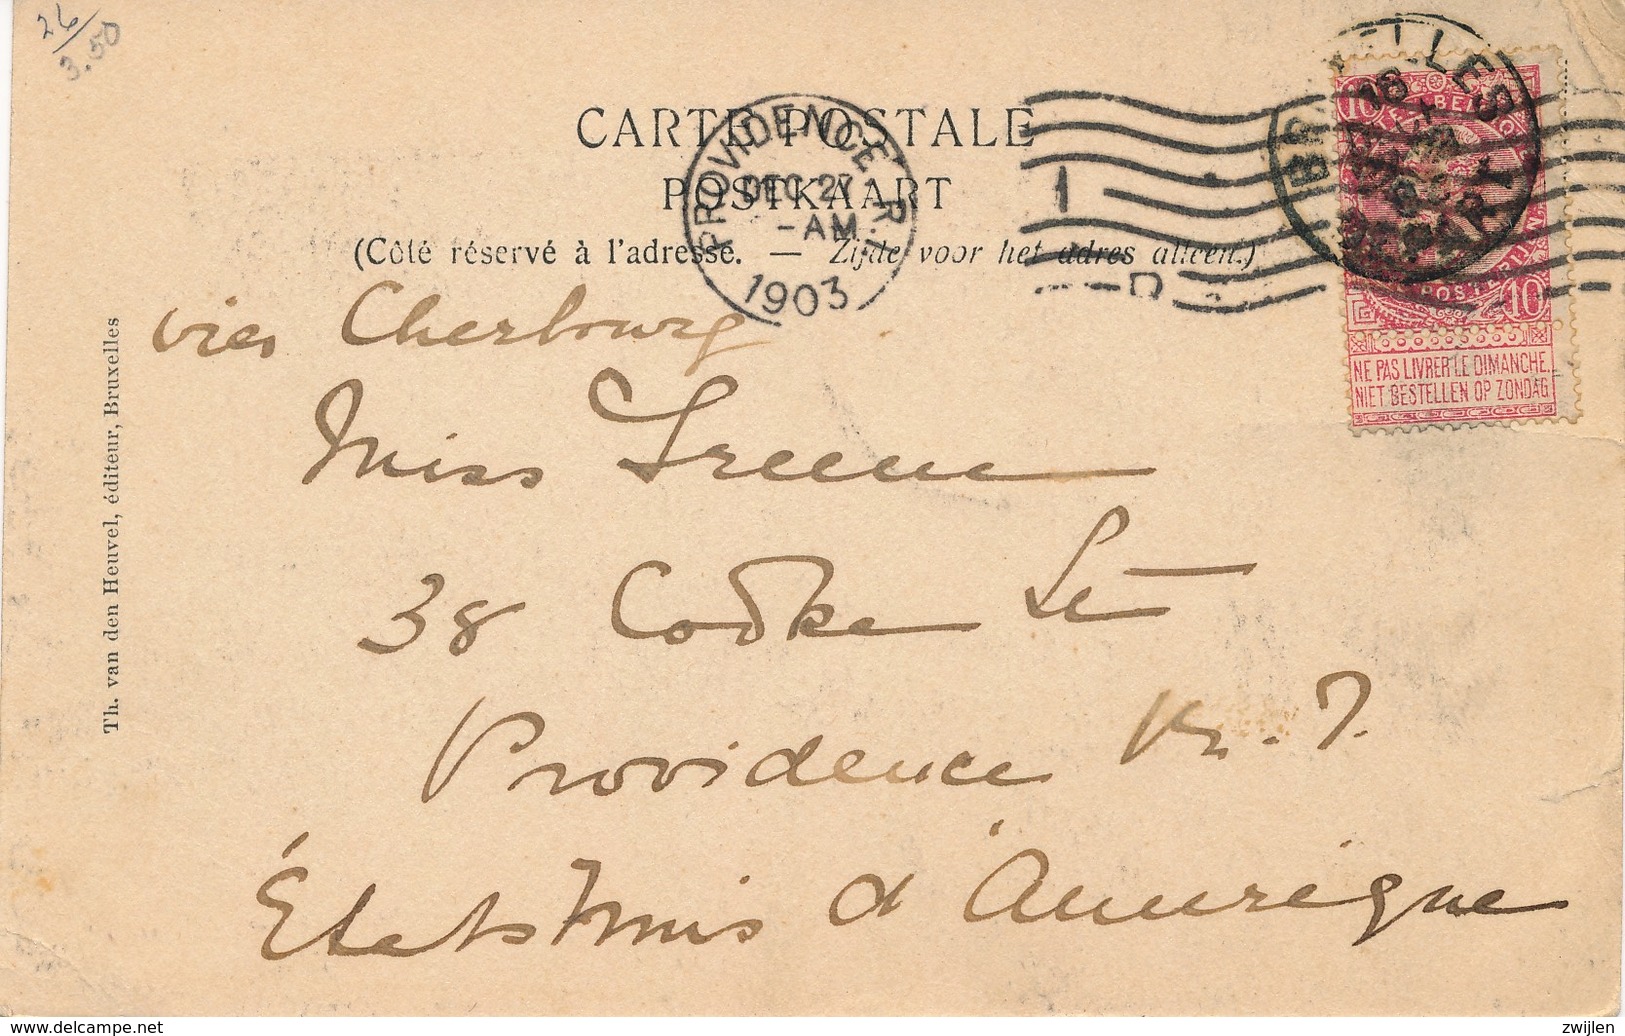 26/
3.50
CARTE POSTALE
POSTKAART
(Côté réservé à l'adresse. — Zijde voor het adres alleen.)
PROVIDENCE, R.I.
DEC 27
-AM
1903
1
D
BRUXELLES
16
DEPART
10 BELGIQUE
POSTERIJEN 10
NE PAS LIVRER LE DIMANCHE.
NIET BESTELLEN OP ZONDAG
Th. van den Heuvel, éditeur, Bruxelles
via Cherbourg
Miss Greene
38 Cooke St
Providence R. I.
États Unis d'Amérique
www.delcampe.net
zwijlen